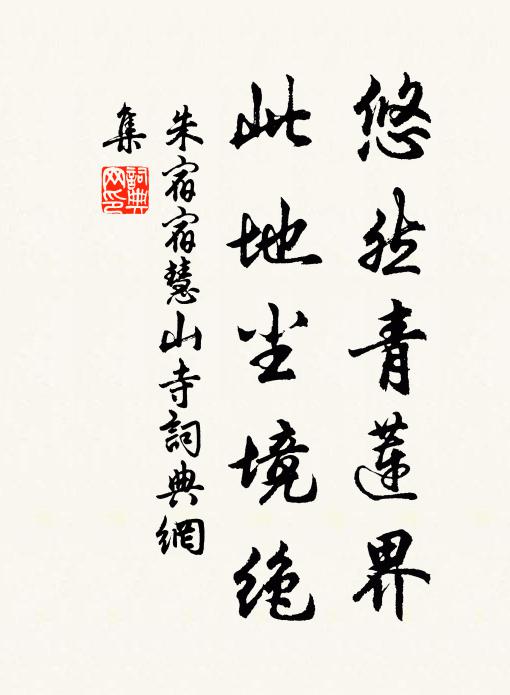 悠然青莲界
此地尘境绝
朱宿宿慧山寺詞典網
集
詞典
网印